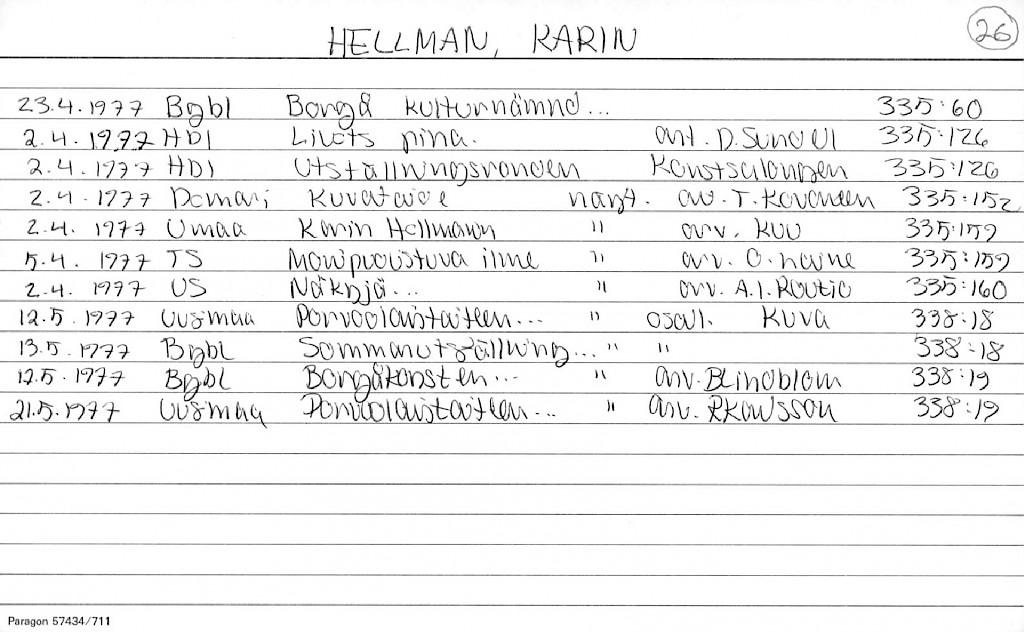 HELLMAN, KARIN 26
23.4.1977 Bgbl Borgå kulturnämnd... 335:60
2.4.1977 HBl Livets pina. ant. D. Sundell 335:126
2.4.1977 HBl Utställningsronden Konstsalongen 335:126
2.4.1977 Demari Kuvataide näyt. arv. T. Kovanen 335:152
2.4. 1977 Umaa Karin Hellmann " arv. KUU 335:159
5.4. 1977 TS Monipuolistuva ilme " arv. O. 335:159
2.4. 1977 US Näkyjä... " arv. A.I. Routio 335:160
12.5. 1977 Uusimaa Porvoolaistaiteen... " osall. Kuva 338:18
13.5. 1977 Bgbl Sommarutställning... " " 338:18
12.5. 1977 Bgbl Borgåkonsten... " arv. B Lindblom 338:19
21.5.1977 Uusimaa Porvoolaistaiteen... " arv. 338:19
Paragon 57434/711